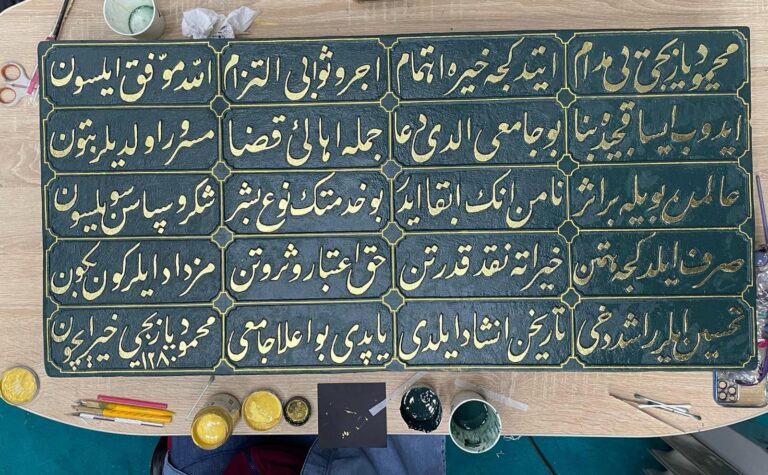 محمود یازیجی بی مدام ایتدکجه خیره اهتمام اجر و ثوابی التزام الله موفق ایلسون
ایدوب ایساقجیده بنا بو جامعی الدی دعا جمله اهالئ قضا مسرور اولدیلر بتون
عالمدن بویله بر اثر نامن انك ابقا ایدر بو خدمتك نوع بشر شكر و سپاسن سویلسون
صرف ایلدكجه همتن خیراته نقد قدرتن حق اعتبار و ثروتن مزداد ایلر كون بكون
تحسین ایلر راشد دخی تاریخن انشاد ایلدی یاپدی بو اعلا جامعی محمود یازیجی خیر ایچون
١٢٨٠